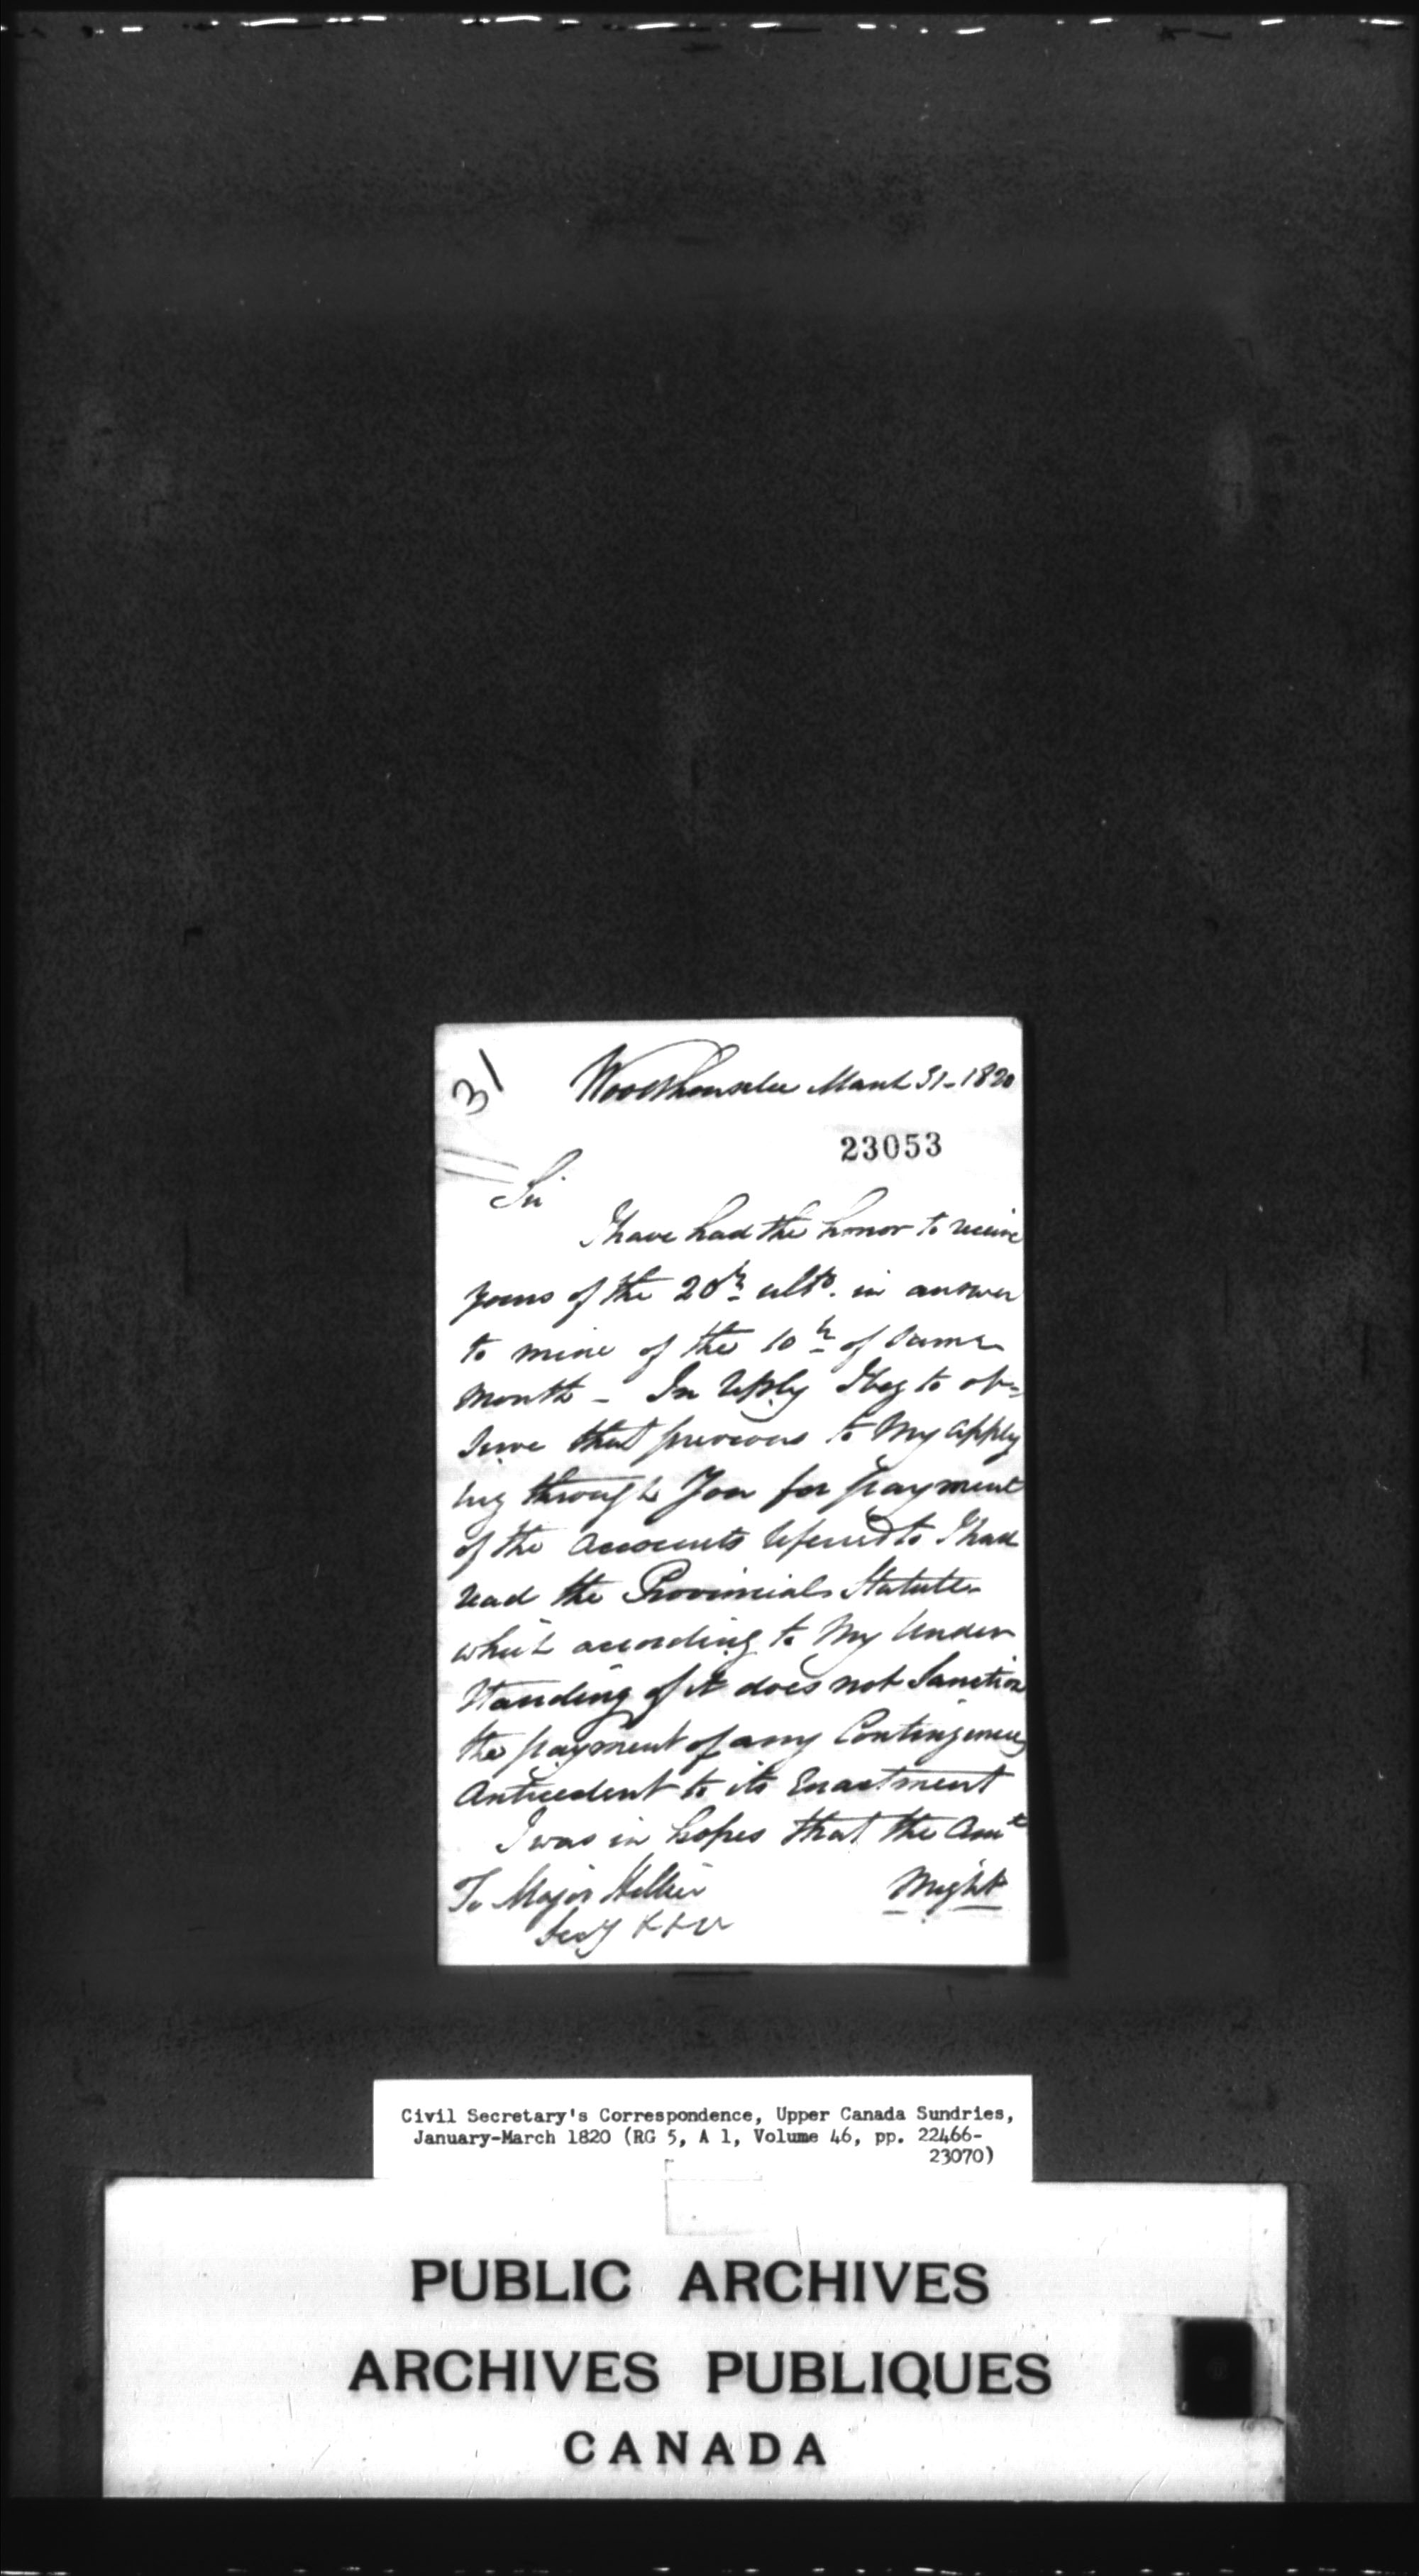 31
Woodhouselee March 31 - 1820
23053
Sir
I have had the honor to receive
yours of the 20th ulto. in answer
to mine of the 10th of same
month - In reply I beg to ob=
serve that previous to My apply
ing through You for payment
of the accounts referred to I had
read the Provincial Statute
which according to My Under
standing of it does not Sanction
the payment of any Contingencies
Antecedent to its Enactment
I was in hopes that the Amt
Might
To Major Hillier
Secy &&&
Civil Secretary's Correspondence, Upper Canada Sundries,
January-March 1820 (RG 5, A 1, Volume 46, pp. 22466-
23070)
PUBLIC ARCHIVES
ARCHIVES PUBLIQUES
CANADA